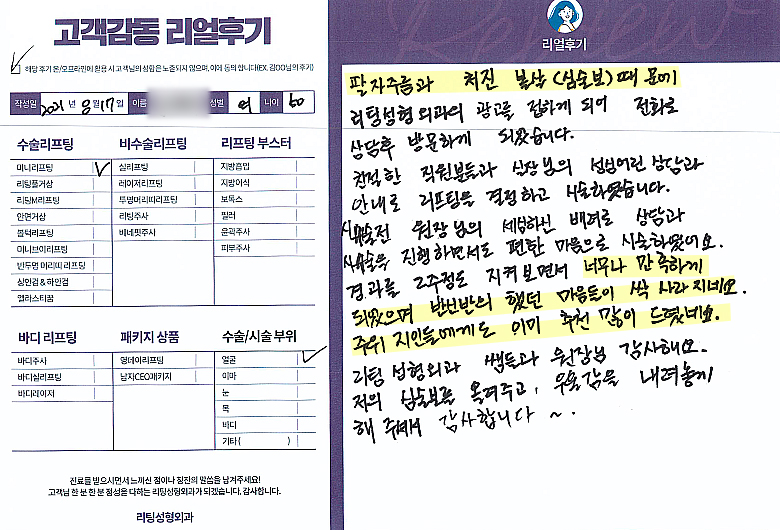 고객감동 리얼후기
해당 후기 온/오프라인에 활용 시 고객님의 성함은 노출되지 않으며, 이에 동의 합니다(EX. 김OO님의 후기)
작성일 2021년 8월 17일 이름 성별 여 나이 60
수술리프팅
미니리프팅
리팅풀거상
리팅M리프팅
안면거상
볼럭리프팅
미니브이리프팅
반두면 머리띠 리프팅
실안검 & 하안검
엘라스티꿈
비수술리프팅
실리프팅
레이저리프팅
투명머리띠리프팅
리팅주사
베네핏주사
리프팅 부스터
지방흡입
지방이식
보톡스
필러
윤곽주사
피부주사
바디 리프팅
바디주사
바디실리프팅
바디레이저
패키지 상품
영데이리프팅
남자CEO패키지
수술/시술 부위
얼굴
이마
눈
목
바디
기타 ( )
진료를 받으시면서 느끼신 점이나 칭찬의 말씀을 남겨주세요!
고객님 한 분 한 분 정성을 다하는 리팅성형외과가 되겠습니다. 감사합니다.
리팅성형외과
리얼후기
팔자주름과 처진 볼살 (심술보) 때문에
리팅성형외과의 광고를 접하게 되어 전화로
상담후 방문하게 되었습니다.
친절한 직원분들과 실장님의 성심어린 상담과
안내로 리프팅을 결정하고 시술하였습니다.
시술전 원장님의 세심하신 배려로 상담과
시술을 진행하면서도 편한 마음으로 시술하였어요.
경과를 2주정도 지켜보면서 너무나 만족하게
되었으며 반신반의 했던 마음들이 싹 사라지네요.
주위 지인들에게도 이미 추천 많이 드렸네요.
리팅성형외과 쌤들과 원장님 감사해요.
저의 심술보를 올려주고, 우울감을 내려놓게
해 주셔서 감사합니다 ~.